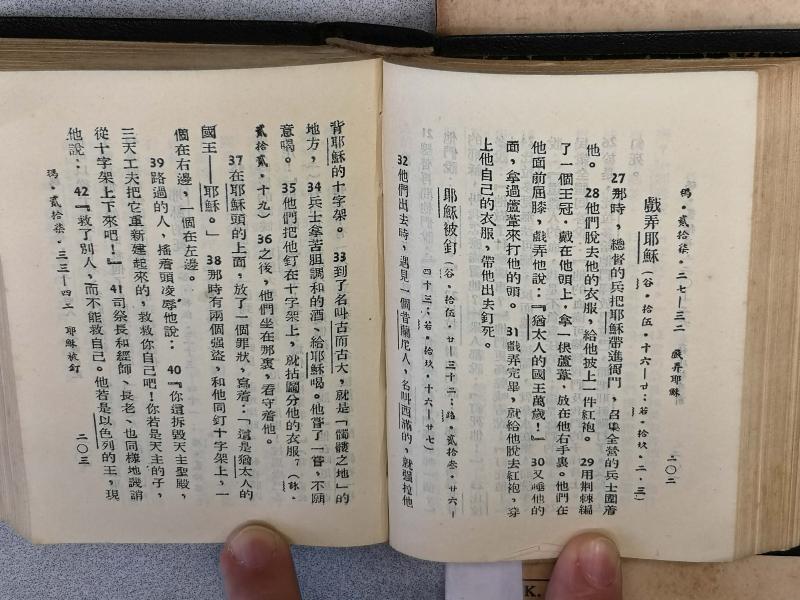 瑪·貳拾柒·二七—三二 戲弄耶穌 二〇二
戲弄耶穌(谷·拾伍·十六—廿;若·拾玖·二,三)
27那時,總督的兵把耶穌帶進衙門,召集全營的兵士圍着
他。28他們脫去他的衣服,給他披上一件紅袍。29用荆棘編
了一個王冠,戴在他頭上,拿一根蘆葦,放在他右手裏。他們在
他面前屈膝,戲弄他說:『猶太人的國王萬歲!』30又唾他的
面,拿過蘆葦來打他的頭。31戲弄完畢,就給他脫去紅袍,穿
上他自己的衣服,帶他出去釘死。
耶穌被釘(谷·拾伍·廿一—三十二;路·貳拾叁·廿六—
四十三;若·拾玖·十六—廿七)
32他們出去時,遇見一個昔蘭尼人,名叫西滿的,就强拉他
背耶穌的十字架。33到了名叫古而古大,就是「髑髏之地」的
地方,34兵士拿苦胆調和的酒、給耶穌喝。他嘗了一嘗,不願
意喝。35他們把他釘在十字架上,就拈鬮分他的衣服,(詠·
貳拾貳·十九)36之後,他們坐在那裏,看守着他。
37在耶穌頭的上面,放了一個罪狀,寫着:「這是猶太人的
國王——耶穌。」38那時有兩個强盜,和他同釘十字架上,一
個在右邊,一個在左邊。
39路過的人,搖着頭凌辱他說:40『你這拆毀天主聖殿,
三天工夫把它重新建起來的,救救你自己吧!你若是天主的子,
從十字架上下來吧!』41司祭長和經師、長老、也同樣地譏誚
他說:42『救了別人,而不能救自己。他若是以色列的王,現
瑪·貳拾柒·三三—四二 耶穌被釘 二〇三
K.